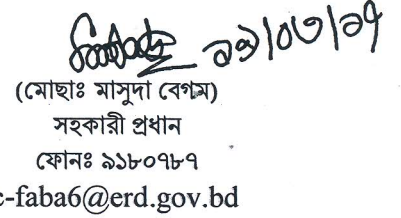 ২৯/০৩/১৭
(মোছাঃ মাসুদা বেগম)
সহকারী প্রধান
ফোনঃ ৯১৮০৭৮৭
c-faba6@erd.gov.bd